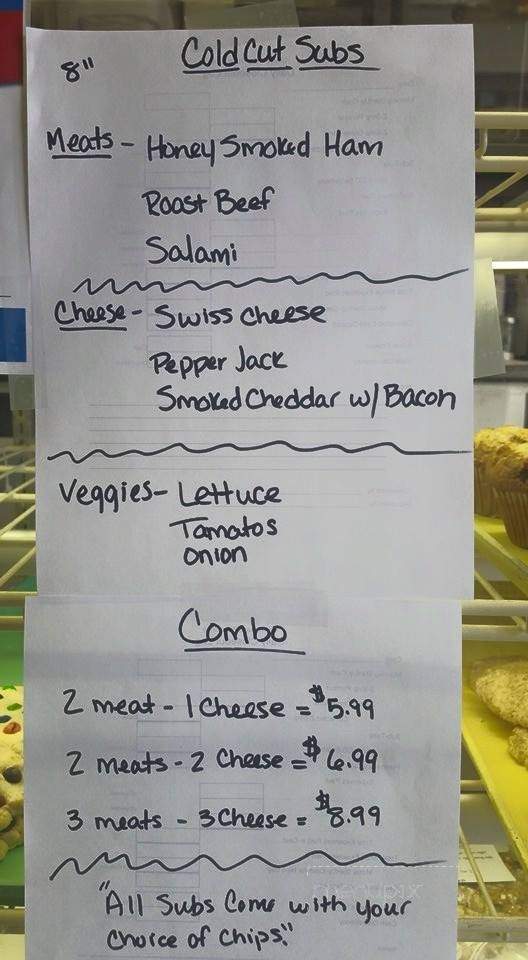 8" Cold Cut Subs
Meats - Honey Smoked Ham
Roast Beef
Salami
Cheese - Swiss cheese
Pepper Jack
Smoked Cheddar w/ Bacon
Veggies - Lettuce
Tamatos
onion
Combo
2 meat - 1 Cheese = $5.99
2 meats - 2 Cheese = $6.99
3 meats - 3 Cheese = $8.99
"All Subs Come with your
Choice of Chips."